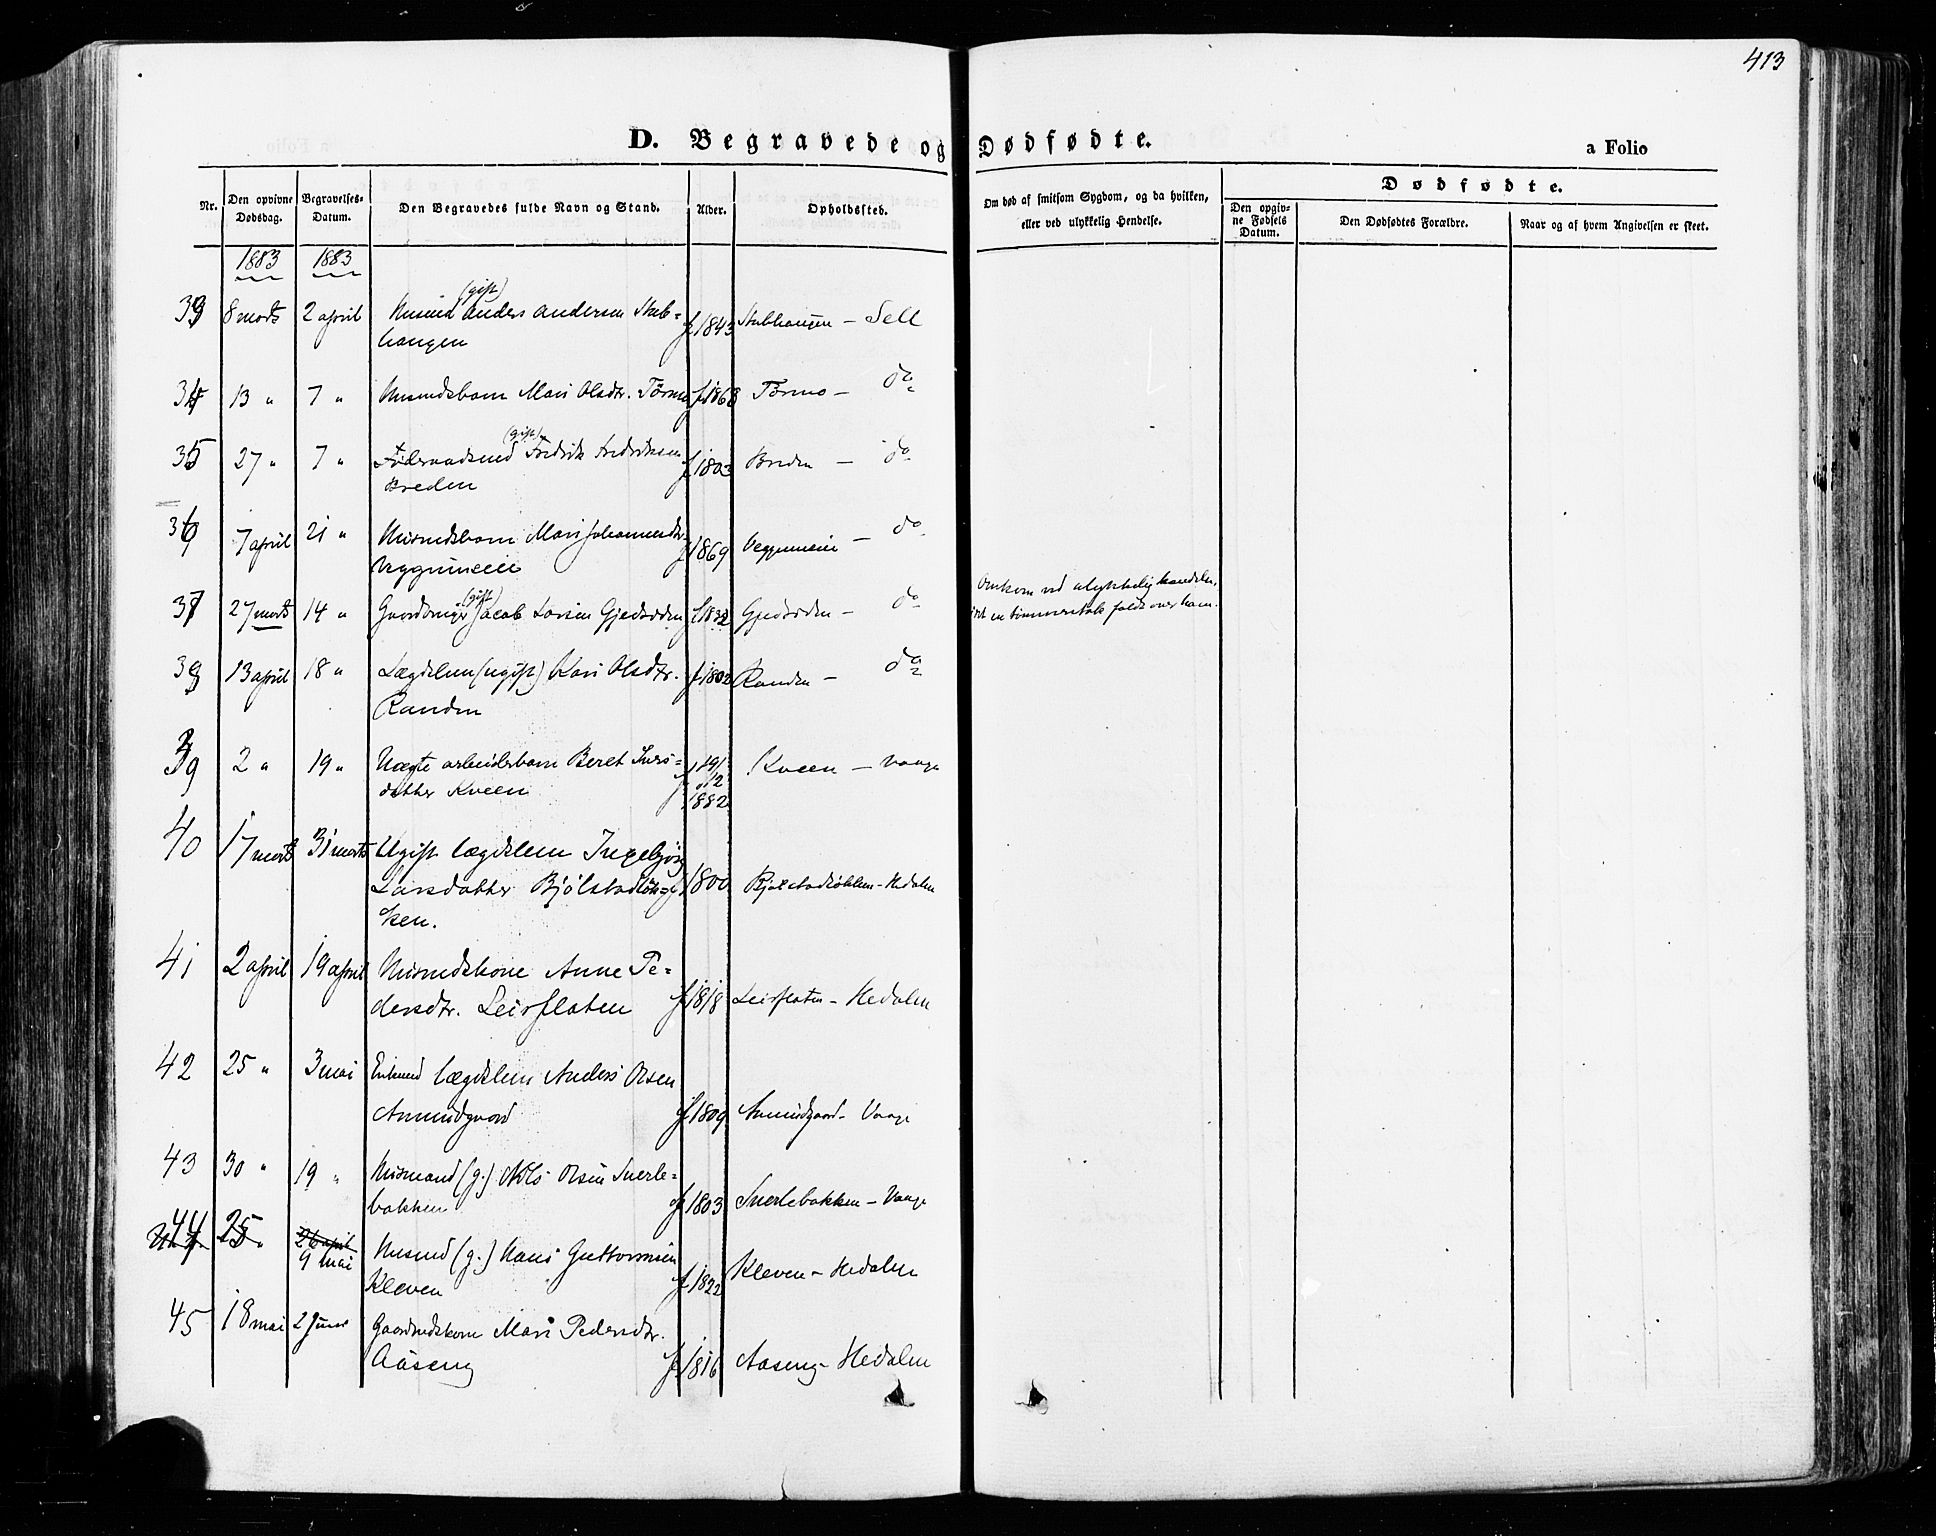 413
D. Begravede og Dødfødte.
a Folio
Nr. Den opgivne Dødsdag. Begravelses-Datum. Den Begravedes fulde Navn og Stand. Alder. Opholdssted. Om død af smitsom Sygdom, og da hvilken, eller ved ulykkelig Hendelse. Dødfødte.
Den opgivne Fødsels Datum. Den Dødfødtes Forældre. Naar og af hvem Angivelsen er skeet.
1883 1883
(gift)
33 8 marts 2 april Husmd Anders Andersen Stub= f 1843 Stubhaugen – Sell
haugen
34 13 " 7 " Husmdsbarn Mari Olsdtr. Tormo f 1868 Tormo – do
(gift)
35 27 " 7 " Føderaadsmd Fredrik Fredriksen f 1803 Breden – do
Breden
36 7 april 21 " Husmdsbarn Mari Johannesdtr. f 1869 Veggumeie – do
Veggumeie
(gift)
37 27 marts 14 " Gaardbruger Jacob Larsen f 1832 – do Omkom ved ulykkelig handelse,
idet en tømmerstok faldt over ham.
38 13 april 18 " Lægdslem (ugift) Kari Olsdtr. f 1802 Randen – do
Randen
39 2 " 19 " Uægte arbeiderbarn Beret Ivers= f 19/12 1882 Kveen – Vaage
datter Kveen
40 17 marts 31 marts Ugift lægdslem Ingebjørg
Larsdatter Bjølstadløk= f 1800 Bjølstadløkken – Hedalen
ken.
41 2 april 19 april Husmdskone Anne Pe=
dersdtr. Leirflaten f 1818 Leirflaten – Hedalen
42 25 " 3 mai Enkemd lægdslem Anders Olsen
Aamundgaard f 1809 Aamundgaard – Vaage
43 30 " 19 " Husmand (g.) Olsen Snerle=
bakken f 1803 Snerlebakken – Vaage
44 25 " 26 april
9 mai Husmd (g.) Hans Guttormsen
Kleven f 1822 Kleven – Hedalen
45 18 mai 2 Juni Gaardmdskone Mari Pedersdtr.
Aaseng f 1816 Aaseng – Hedalen